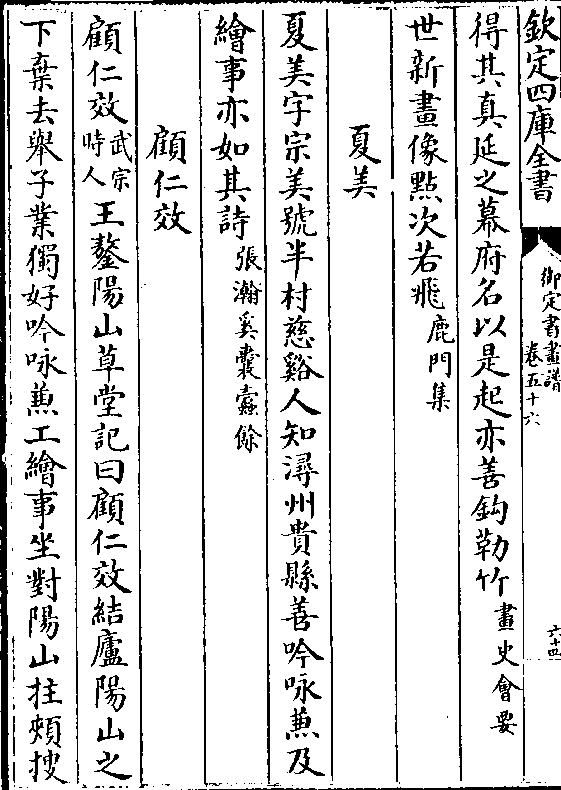 欽定四庫全書
御定書畫譜
卷五十六
六十四
得其真延之幕府名以是起亦善鈎勒竹畫史會要
世新畫像點次若飛鹿門集
夏美
夏美字宗美號半村慈谿人知潯州貴縣善吟咏兼及
繪事亦如其詩張瀚奚囊蠹餘
顧仁效
顧仁效武宗時人王鏊陽山草堂記曰顧仁效結廬陽山之
下棄去舉子業獨好吟咏兼工繪事坐對陽山拄頰搜